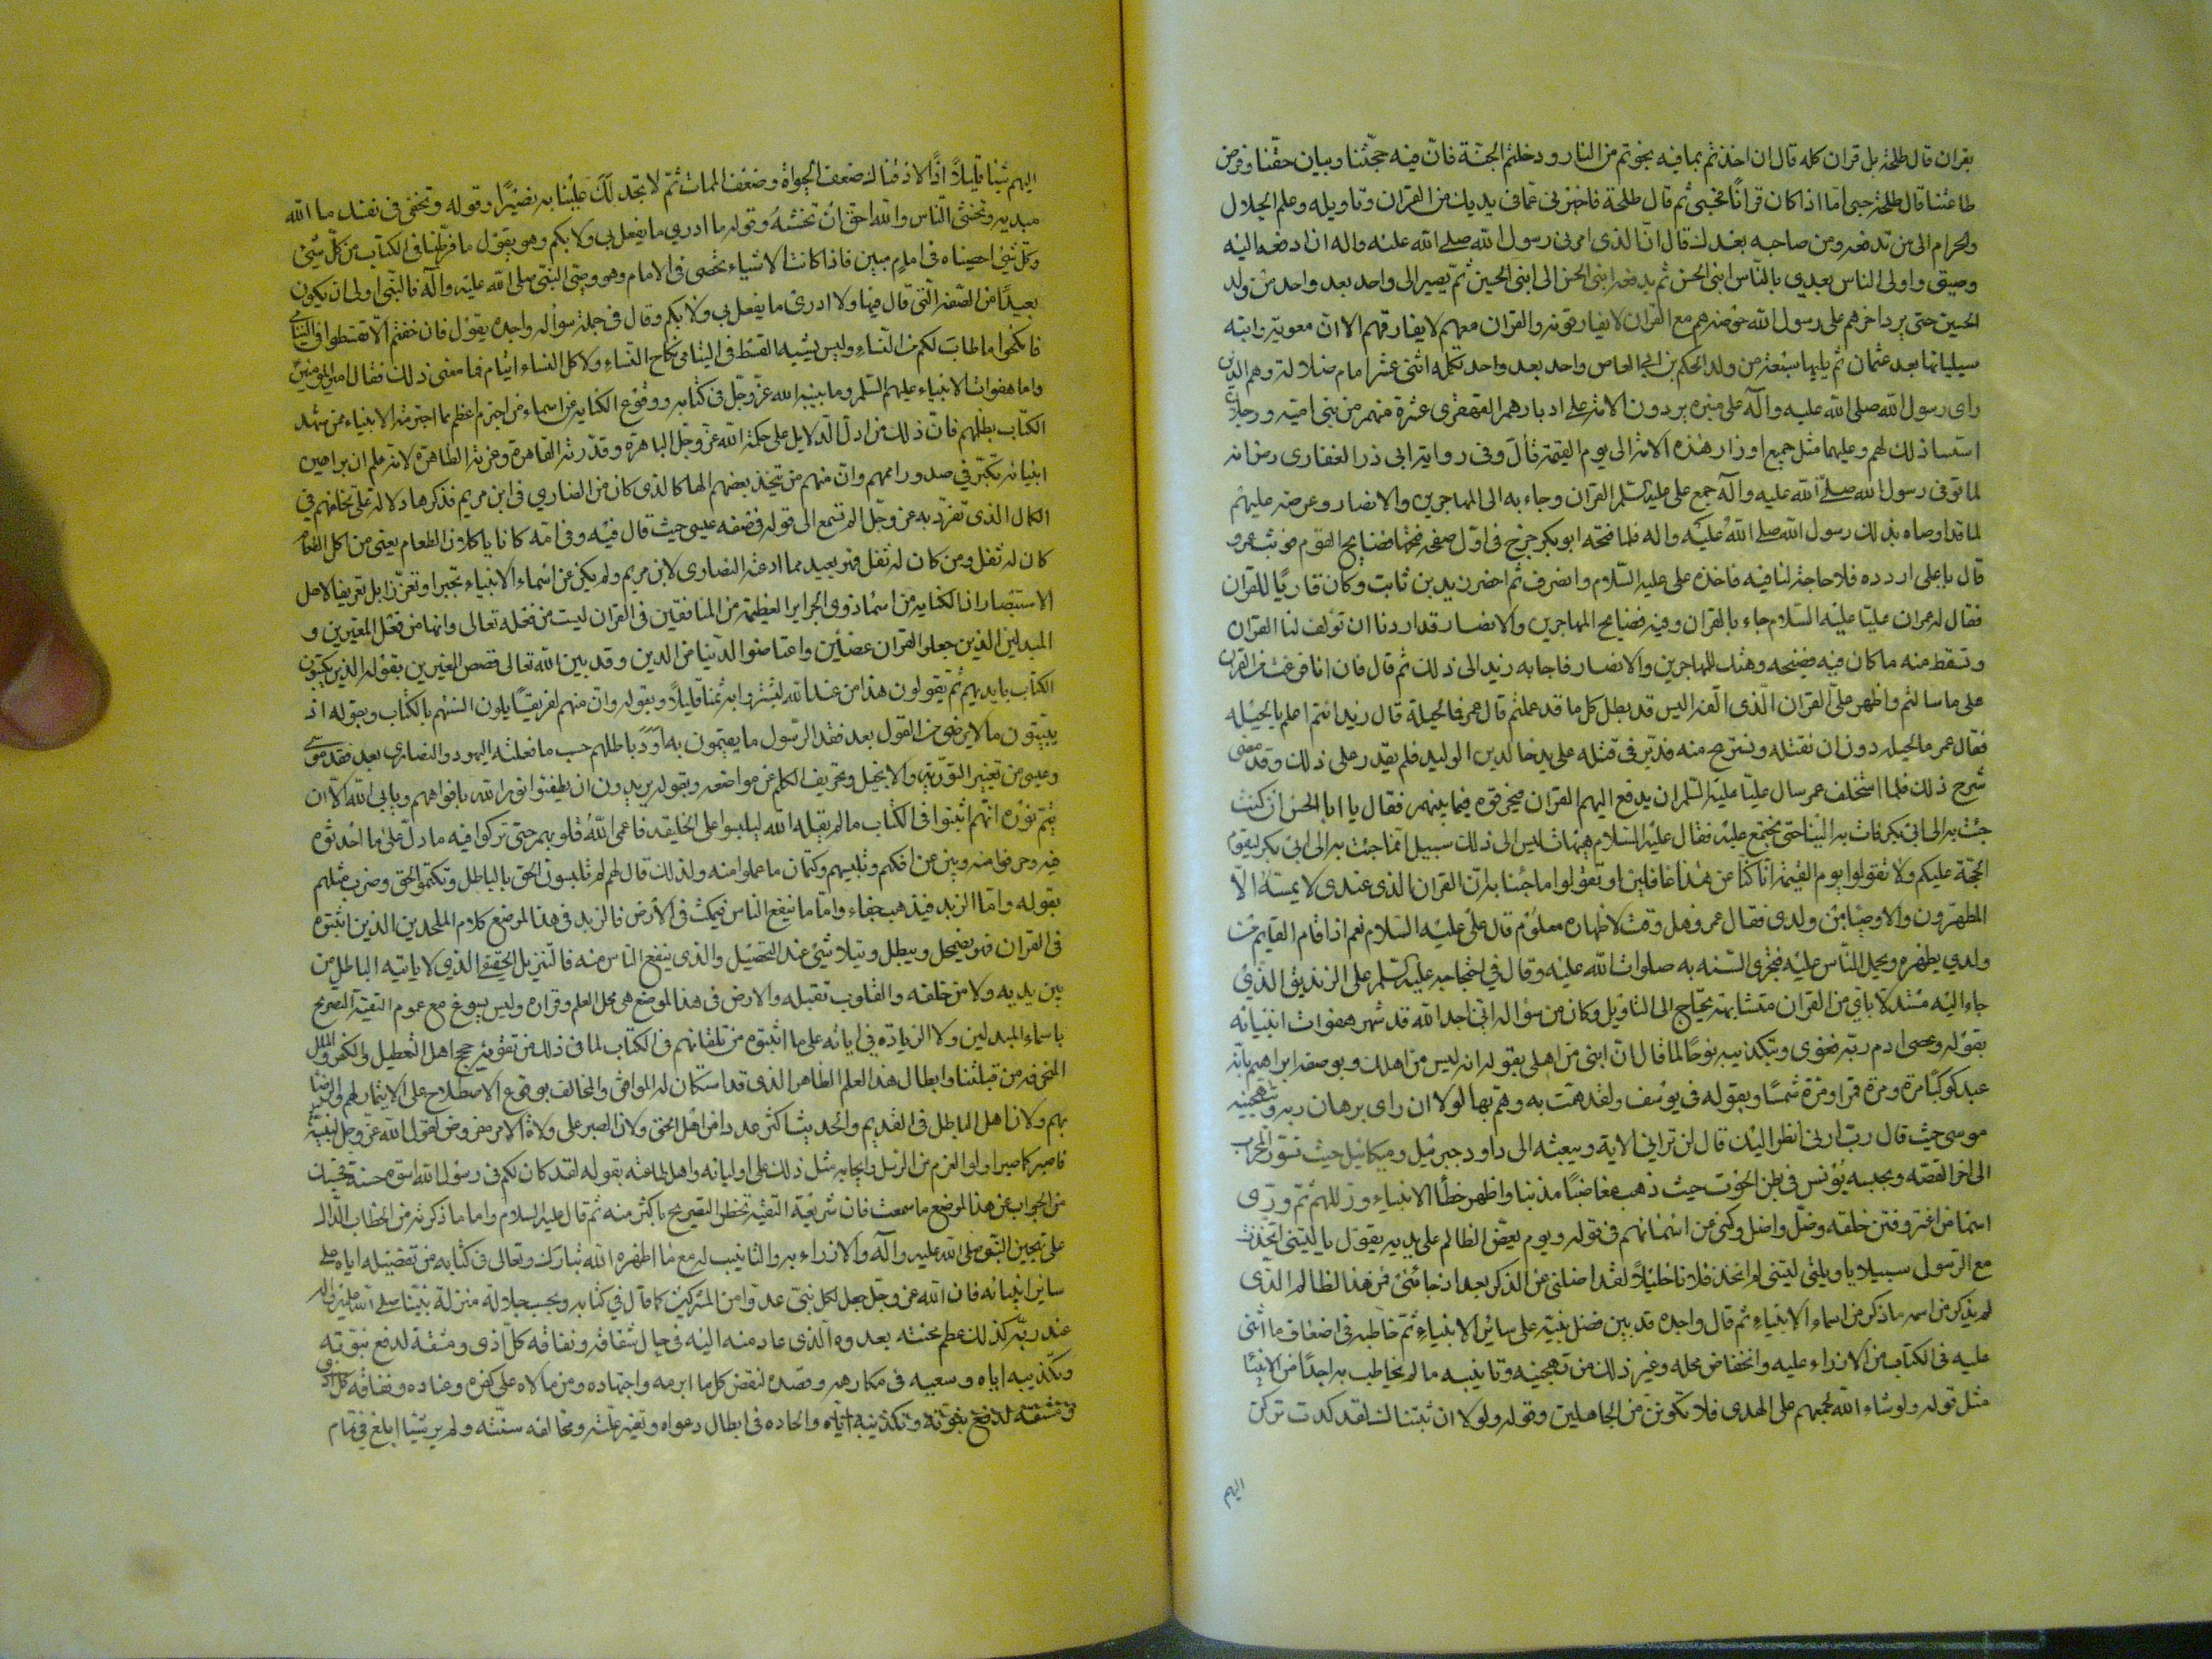 بقران قال طلحة بل قران كله قال ان اخذتم بما فيه نجوتم من النار ودخلتم الجنة فان فيه حجتنا وبيان حقنا وفرض
طاعتنا قال طلحة حسبى اما اذا كان قرانا فحسبى ثم قال طلحة فاخبرنى عما فى يديك من القران وتاويله وعلم الحلال
والحرام الى من تدفعه ومن صاحبه بعدك قال ان الذى امرنى رسول الله صلى الله عليه واله ان ادفعه اليه
وصيى واولى الناس بعدي بالناس ابنى الحسن ثم يدفعه ابنى الحسن الى ابنى الحسين ثم يصير الى واحد بعد واحد من ولد
الحسين حتى يرد اخرهم على رسول الله حوضه هم مع القران لا يفارقونه والقران معهم لا يفارقهم الا ان معوية وابنه
سيليانها بعد عثمان ثم يليها سبعة من ولد الحكم بن ابى العاص واحد بعد واحد تكملة اثنى عشر امام ضلالة وهم الذين
راى رسول الله صلى الله عليه وآله على منبره يردون الامة على ادبارهم القهقرى عشرة منهم من بنى امية ورجلان
اسسا ذلك لهم وعليهما مثل جميع اوزار هذه الامة الى يوم القيمة قال وفى رواية ابى ذر الغفارى رض انه
لما توفى رسول الله صلى الله عليه وآله جمع على عليه السلم القران وجاء به الى المهاجرين والانصار وعرضه عليهم
لما قد اوصاه بذلك رسول الله صلى الله عليه واله فلما فتحه ابو بكر خرج فى اول صفحة فتحها فضايح القوم فوثب عمر و
قال يا على اردده فلا حاجة لنا فيه فاخذه على عليه السلام وانصرف ثم احضر زيد بن ثابت وكان قاريا للقران
فقال له عمر ان عليا عليه السلام جاء بالقران وفيه فضايح المهاجرين والانصار وقد اردنا ان تؤلف لنا القران
وتسقط منه ما كان فيه فضيحة وهتك للمهاجرين والانصار فاجابه زيد الى ذلك ثم قال فان انا فرغت من القران
على ما سالتم واظهر على القران الذى الفه اليس قد بطل كل ما قد عملتم قال عمر فما الحيلة قال زيد انتم اعلم بالحيلة
فقال عمر ما الحيلة دون ان نقتله ونستريح منه فدبر فى قتله على يد خالد بن الوليد فلم يقدر على ذلك وقد مضى
شرح ذلك فلما استخلف عمر سال عليا عليه السلم ان يدفع اليهم القران فيحرفوه فيما بينهم فقال يا ابا الحسن ان كنت
جئت به الى ابى بكر فات به الينا حتى نجتمع عليه فقال عليه السلام هيهات ليس الى ذلك سبيل انما جئت به الى ابى بكر ليقوم
الحجة عليكم ولا تقولوا يوم القيمة انا كنا عن هذا غافلين او تقولوا ما جئتنا به ان القران الذى عندى لا يمسه الا
المطهرون والاوصياء من ولدى فقال عمر وهل وقت لاظهاره معلوم قال على عليه السلام نعم اذا قام القايم من
ولدي يظهره ويحمل الناس عليه فتجرى السنة به صلوات الله عليه وقال في احتجاجه عليه السلم على الزنديق الذي
جاء اليه مستدلا باى من القران متشابهة يحتاج الى التاويل وكان من سؤاله انى اجد الله قد شهر هفوات انبيائه
بقوله وعصى ادم ربه فغوى وبتكذيبه نوحا لما قال ان ابنى من اهلى بقوله انه ليس من اهلك وبوصفه ابراهيم بانه
عبد كوكبا مرة ومرة قمرا ومرة شمسا وبقوله فى يوسف ولقد همت به وهم بها لولا ان راى برهان ربه وبتهجينه
موسى حيث قال رب ارنى انظر اليك قال لن ترانى الاية وببعثه الى داود جبرئيل وميكائيل حيث تسوروا المحراب
الى اخر القصة وبحبسه يونس فى بطن الحوت حيث ذهب مغاضبا مذنبا واظهر خطأ الانبياء وزللهم ثم ورى
اسما من اغتر وفتن خلقه وضل واضل وكنى عن اسمائهم فى قوله ويوم يعض الظالم على يديه يقول يا ليتنى اتخذت
مع الرسول سبيلا يا ويلتى ليتنى لم اتخذ فلانا خليلا لقد اضلنى عن الذكر بعد اذ جائنى فمن هذا الظالم الذى
لم يذكر من اسمه ما ذكر من اسماء الانبياء ثم قال واجده قد بين فضل نبيه على سائر الانبياء ثم خاطبه فى اضعاف ما اثنى
عليه فى الكتاب من الازراء عليه وانخفاض محله وغير ذلك من تهجينه وتانيبه ما لم يخاطب به احدا من الانبياء
مثل قوله ولو شاء الله لجمعهم على الهدى فلا تكونن من الجاهلين وقوله ولولا ان ثبتناك لقد كدت تركن
اليهم
اليهم شيئا قليلا اذا لاذقناك ضعف الحيوة وضعف الممات ثم لا تجد لك علينا به نصيرا وقوله وتخفى فى نفسك ما الله
مبديه وتخشى الناس والله احق ان تخشه وقوله ما ادري ما يفعل بى ولا بكم وهو يقول ما فرطنا فى الكتاب من كل شئ
وكل شئ احصيناه فى امام مبين فاذا كانت الاشياء تحصى فى الامام وهو وصى النبى صلى الله عليه وآله فالنبى اولى ان يكون
بعيدا من الصفة التى قال فيها ولا ادرى ما يفعل بى ولا بكم وقال فى جملة سؤاله واجده يقول فان خفتم الا تقسطوا فى اليتامى
فانكحوا ما طاب لكم من النساء وليس يشبه القسط فى اليتامى نكاح النساء ولا كل النساء ايتام فما معنى ذلك فقال امير المؤمنين
واما هفوات الانبياء عليهم السلم وما بينه الله عز وجل فى كتابه ووقوع الكناية عن اسماء من اجترم اعظم مما اجترمته الانبياء ممن شهد
الكتاب بظلمهم فان ذلك من ادل الدلايل على حكمة الله عز وجل الباهرة وقدرته القاهرة وعزته الظاهرة لانه علم ان براهين
انبيائه تكبر في صدور اممهم وان منهم من يتخذ بعضهم الها كالذى كان من النصارى فى ابن مريم فذكرها دلالة على تخلفهم فى
الكمال الذى تفرد به عز وجل الم تسمع الى قوله فى صفة عيسى حيث قال فيه وفى امه كانا ياكلان الطعام يعنى من اكل الطعام
كان له ثفل ومن كان له ثفل فهو بعيد مما ادعته النصارى لابن مريم ولم يكن عن اسماء الانبياء تجبرا وتعززا بل تعريفا لاهل
الاستبصار ان الكناية من اسماء ذوى الجراير العظيمة من المنافقين فى القران ليست من فعله تعالى وانها من فعل المغيرين و
المبدلين الذين جعلوا القران عضين واعتاضوا الدنيا من الدين وقد بين الله تعالى قصص المغيرين بقوله الذين يكتبون
الكتاب بايديهم ثم يقولون هذا من عند الله ليشتروا به ثمنا قليلا وبقوله وان منهم لفريقا يلون السنتهم بالكتاب وبقوله اذ
يبيتون ما لا يرضى من القول بعد فقد الرسول ما يقيمون به اود باطلهم حسب ما فعلته اليهود والنصارى بعد فقد موسى
وعيسى من تغيير التورية والانجيل وتحريف الكلم عن مواضعه وبقوله يريدون ان يطفئوا نور الله بافواههم ويابى الله الا ان
يتم نوره انهم اثبتوا فى الكتاب ما لم يقله الله ليلبسوا على الخليقة فاعمى الله قلوبهم حتى تركوا فيه ما دل على ما احدثوه
فيه وحرفوا منه وبين عن افكهم وتلبيسهم وكتمان ما علموا منه ولذلك قال لهم لم تلبسون الحق بالباطل وتكتموا الحق وضرب مثلهم
بقوله واما الزبد فيذهب جفاء واما ما ينفع الناس فيمكث فى الارض فالزبد فى هذا الموضع كلام الملحدين الذين اثبتوه
فى القران فهو يضمحل ويبطل ويتلاشى عند التحصيل والذى ينفع الناس منه فالتنزيل الحقيقى الذى لا ياتيه الباطل من
بين يديه ولا من خلفه والقلوب تقبله والارض فى هذا الموضع هى محل العلم وقراره وليس يسوغ مع عموم التقية التصريح
باسماء المبدلين ولا الزيادة فى اياته على ما اثبتوه من تلقائهم فى الكتاب لما فى ذلك من تقوية حجج اهل التعطيل والكفر والملل
المنحرفة من قبلتنا وابطال هذا العلم الظاهر الذى قد استكان له الموافق والمخالف بوقوع الاصطلاح على الايتمار لهم والرضا
بهم ولان اهل الباطل فى القديم والحديث اكثر عددا من اهل الحق ولان الصبر على ولاة الامر مفروض لقول الله عز وجل لنبيه
فاصبر كما صبر اولوا العزم من الرسل وايجابه مثل ذلك على اوليائه واهل طاعته بقوله لقد كان لكم فى رسول الله اسوة حسنة فحسبك
من الجواب عن هذا الموضع ما سمعت فان شريعة التقية تحظر التصريح باكثر منه ثم قال عليه السلام واما ما ذكرته من الخطاب الدال
على تهجين النبى صلى الله عليه وآله والازراء به والتانيب له مع ما اظهره الله تبارك وتعالى فى كتابه من تفضيله اياه على
ساير انبيائه فان الله عز وجل جعل لكل نبى عدوا من المشركين كما قال فى كتابه وبحسب جلالة منزلة نبينا صلى الله عليه واله
عند ربه كذلك عظم محنته بعدوه الذى عاد منه اليه فى حال شقاقه ونفاقه كل اذى ومشقة لدفع نبوته
وتكذيبه اياه وسعيه فى مكارهه وقصده لنقض كل ما ابرمه واجتهاده ومن مالاه على كفره وعناده ونفاقه كل اذى
ومشقة لدفع نبوته وتكذيبه اياه والحاده فى ابطال دعواه وتغير ملته ومخالفة سنته ولم ير شيئا ابلغ فى تمام